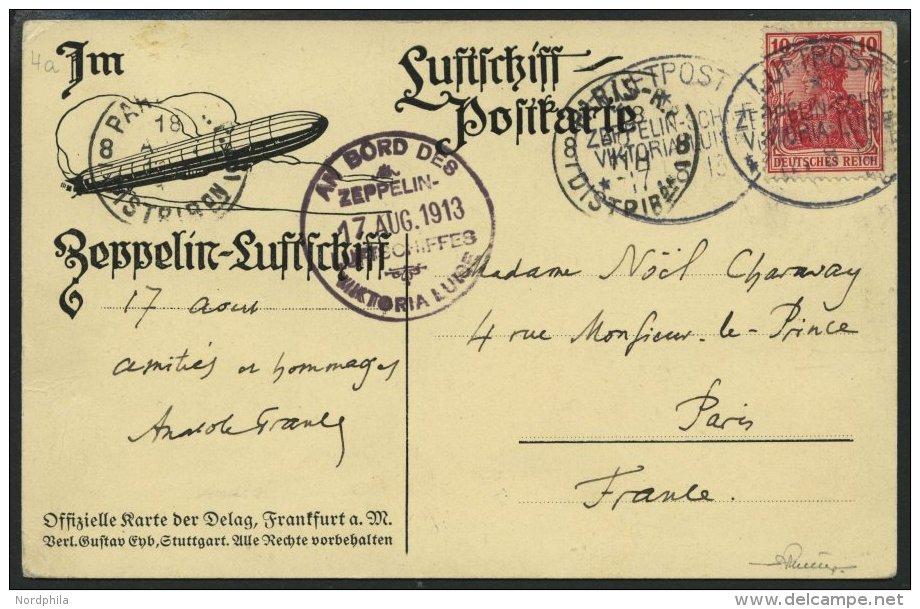 4a
Im
Luftschiff-
Postkarte
Zeppelin-Luftschiff
AN BORD DES
ZEPPELIN-
17. AUG. 1913
LUFTSCHIFFES
VIKTORIA LUISE
PAR
18
8
DISTRIBUTION
PARIS-
8
18
DISTRIB
LUFTPOST
ZEPPELIN-SCH
VIKTORIA LUI
13
LUFTPOST
ZEPPELIN-SCH
VIKTORIA LUIS
10 10
DEUTSCHES REICH
17 aout
amitiés et hommages
Anatole France
Madame Noël Charavay
4 rue Monsieur-le-Prince
Paris
France.
Offizielle Karte der Delag, Frankfurt a. M.
Verl. Gustav Eyb, Stuttgart. Alle Rechte vorbehalten
Nordphila
delcampe.net